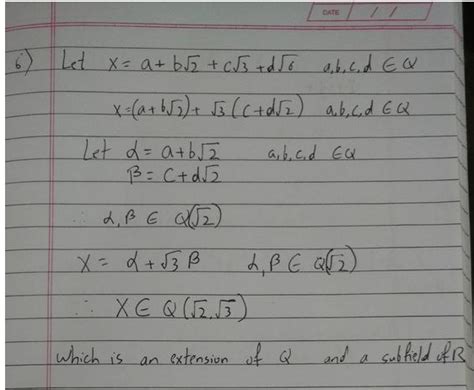 DATE / /
6) Let x = a + b√2 + c√3 + d√6 a,b,c,d ∈ Q
x = (a + b√2) + √3 (c + d√2) a,b,c,d ∈ Q
Let α = a + b√2 a,b,c,d ∈ Q
β = c + d√2
∴ α, β ∈ Q(√2)
x = α + √3 β α, β ∈ Q(√2)
∴ X ∈ Q (√2, √3)
which is an extension of Q and a subfield of R